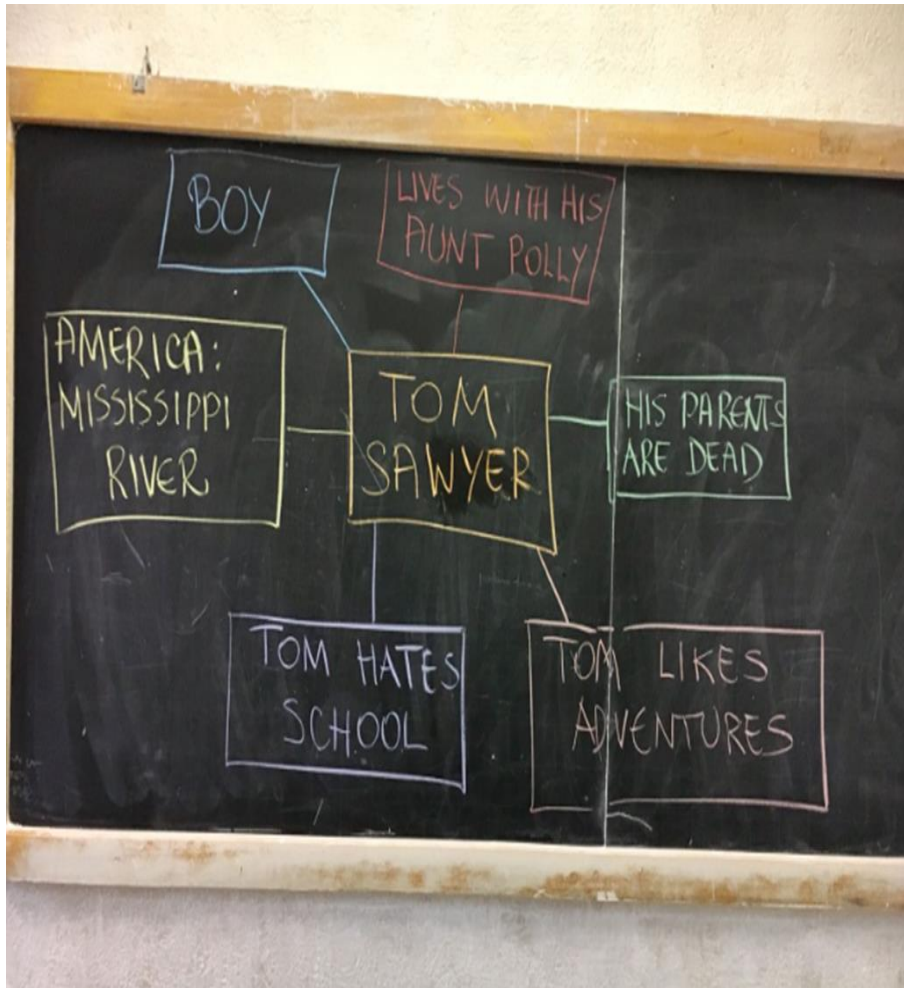 BOY
LIVES WITH HIS
AUNT POLLY
AMERICA:
MISSISSIPPI
RIVER
TOM
SAWYER
HIS PARENTS
ARE DEAD
TOM HATES
SCHOOL
TOM LIKES
ADVENTURES